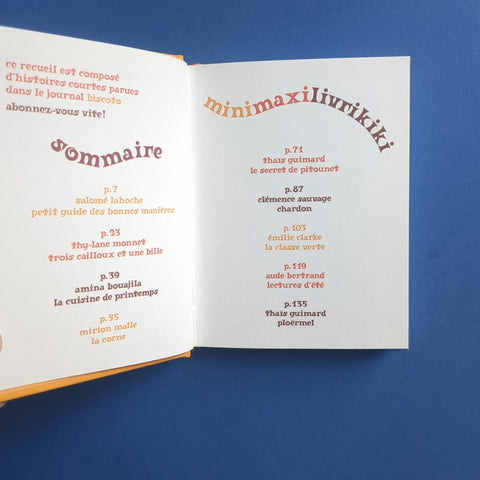 ce recueil est composé
d'histoires courtes parues
dans le journal biscoto
abonnez-vous vite!
sommaire
p.7
salomé lahoche
petit guide des bonnes manières
p.23
thy-lane monnet
trois cailloux et une bille
p.39
amina bouajila
la cuisine de printemps
p.55
mirion malle
la corne
minimaxilivrikiki
p.71
thaïs guimard
le secret de pitounet
p.87
clémence sauvage
chardon
p.103
émilie clarke
la classe verte
p.119
aude bertrand
lectures d'été
p.135
thaïs guimard
ploërmel